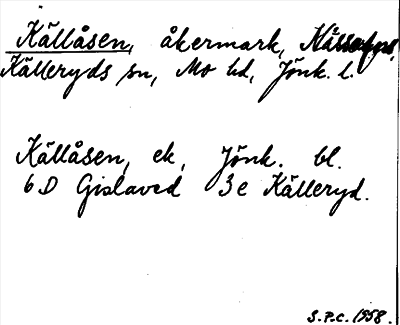 Källåsen, åkermark,
Källeryds sn, Mo hd, Jönk. l.
Källåsen, ek, Jönk. bl.
6D Gislaved 3e Källeryd.
S.P.C. 1958.